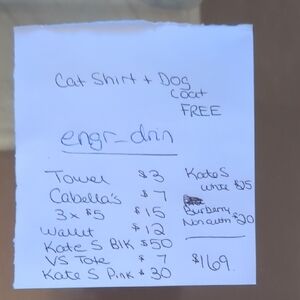 Cat Shirt + Dog
Coat
FREE
engr_dnn
Towel $3
Cabella's $7
3 x $5 $15
Wallet $12
Kate S Blk $50
VS Tote $7
Kate S Pink $30
Kate S
white $25
Burberry
Non auth $20
$169.